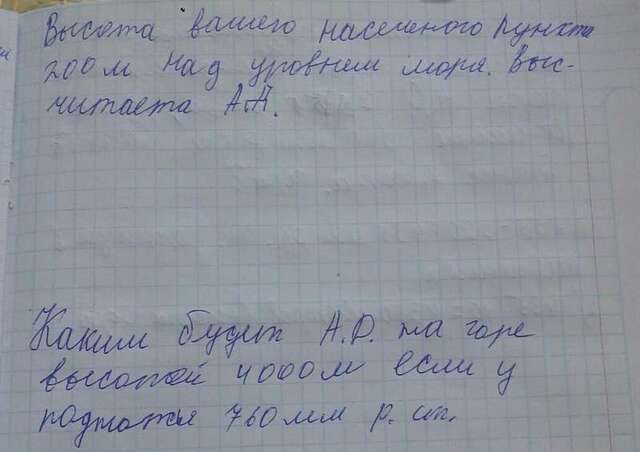 Высота вашего населеного пункта
200м над уровнем моря. Выс-
читаета А.Д.
Каким будет А.Д. на горе
высотой 4000м если у
подножья 760мм р. ст.